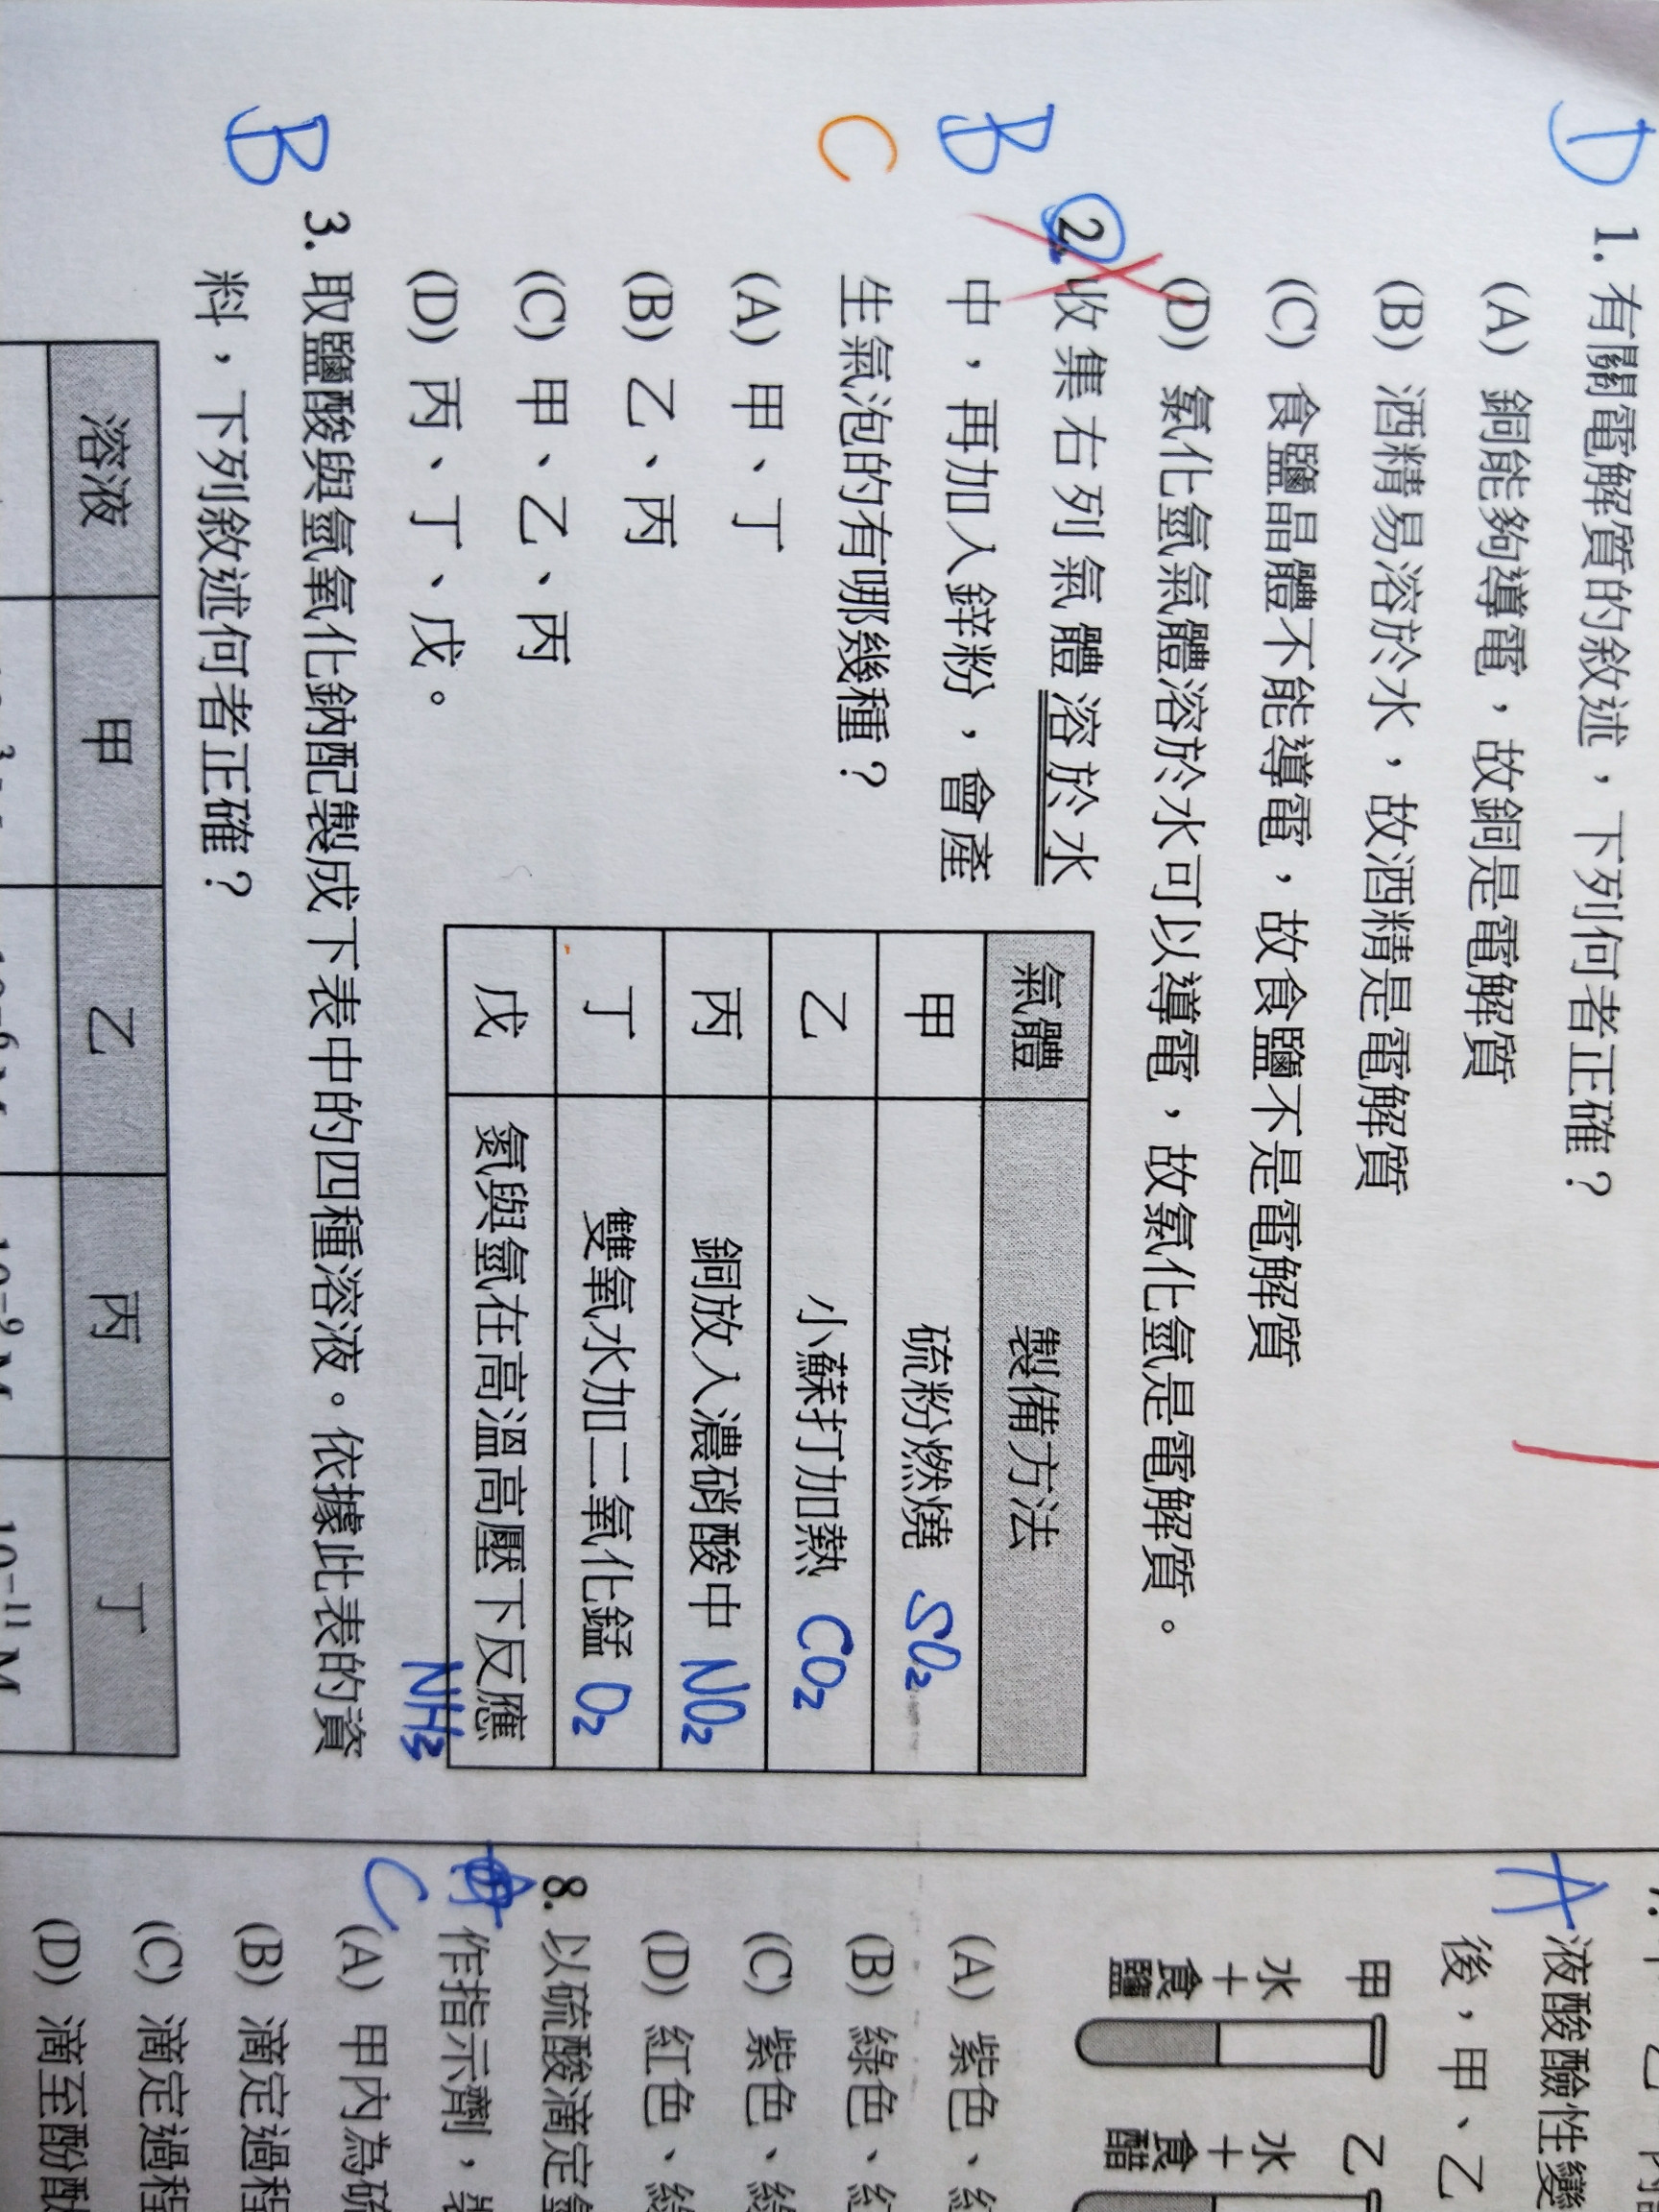 D
1. 有關電解質的敘述，下列何者正確？
(A) 銅能夠導電，故銅是電解質
(B) 酒精易溶於水，故酒精是電解質
(C) 食鹽晶體不能導電，故食鹽不是電解質
(D) 氯化氫氣體溶於水可以導電，故氯化氫是電解質。
B
C
2. 收集右列氣體溶於水
中，再加入鋅粉，會產
生氣泡的有哪幾種？
(A) 甲、丁
(B) 乙、丙
(C) 甲、乙、丙
(D) 丙、丁、戊。
氣體 製備方法
甲 硫粉燃燒 SO₂
乙 小蘇打加熱 CO₂
丙 銅放入濃硝酸中 NO₂
丁 雙氧水加二氧化錳 O₂
戊 氮與氫在高溫高壓下反應
NH₃
B
3. 取鹽酸與氫氧化鈉配製成下表中的四種溶液。依據此表的資
料，下列敘述何者正確？
溶液 甲 乙 丙 丁
10⁻⁹ M 10⁻¹¹ M
A
液酸鹼性變
後，甲、乙
甲 乙
水 水
+ +
食鹽 食醋
(A) 紫色、
(B) 綠色、
(C) 紫色、
(D) 紅色、
8. 以硫酸滴定
作指示劑，
C
(A) 甲內為硫
(B) 滴定過程
(C) 滴定過程
(D) 滴至酚酞